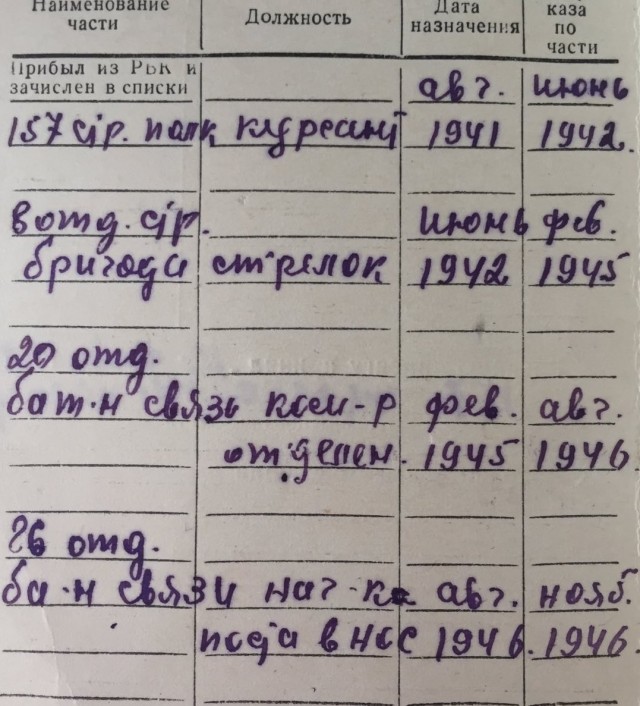 Наименование части Должность Дата назначения каза по части
Прибыл из РВК и
зачислен в списки авг. июнь
157 стр. полк курсант 1941 1942.
в отд. стр. июнь фев.
бригада стрелок 1942 1945
20 отд.
бат-н связь ком-р фев. авг.
отделен. 1945 1946
26 отд.
ба-н связи нач-ка авг. нояб.
поста внос 1946. 1946.